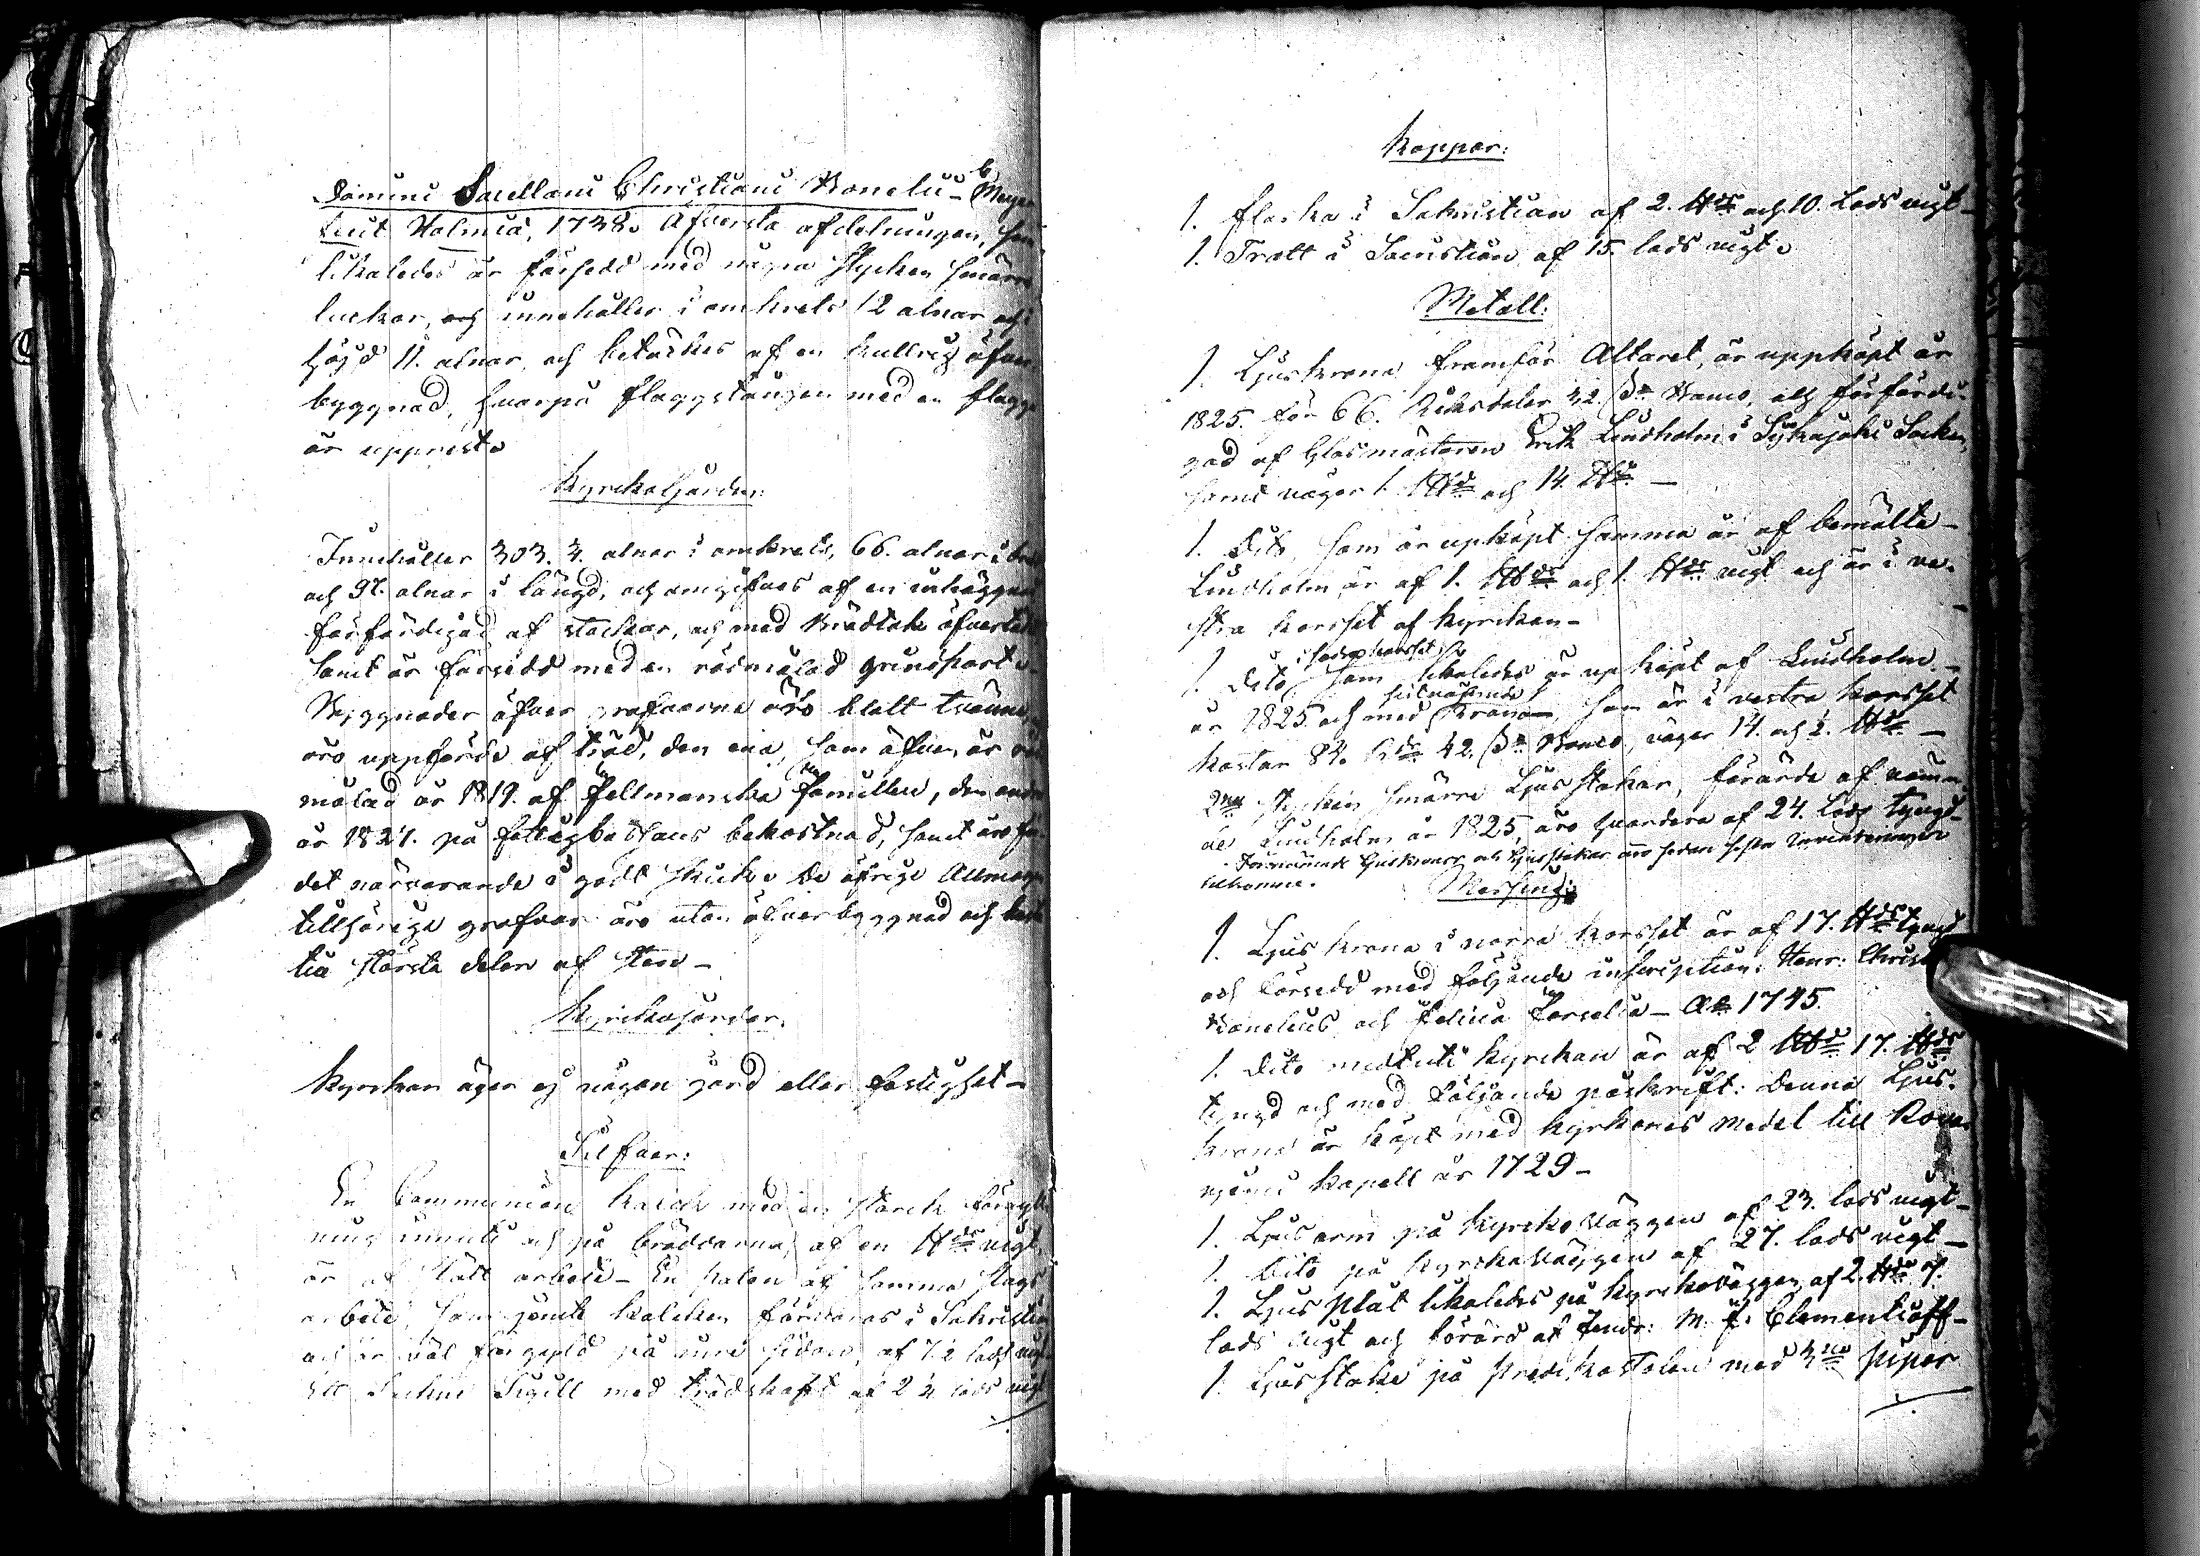 Domini Sacellani Christiani Ronelii – G. Meyer
fecit Holmiæ, 1738. Öfversta afdelningen, som
likaledes är försedd med några stycken smärre
luckor, och innehåller i omkrets 12 alnar och i
höjd 11. alnar, och betäckes af en kullrig öfver
byggnad, hvarpå flaggstången med en flagga
är upprest.
Kyrckogården:
Innehåller 303. 3. alnar i omkrets, 66. alnar i bredd
och 97. alnar i längd, och omgifves af en inhägnad
förfärdigad af stockar, och med brädtak öfvertäckt
samt är försedd med en rödmålad grindport.
Byggnader öfver grafvarna äro blott tvänne,
äro uppförde af träd, den ena, som äfven är röd
målad år 1819. af Fellmanska Familien, den andra
år 1827. på fattigkassans bekostnad, samt äro för
det närvarande i godt skick. De öfrige Allmogen
tillhörige grafvar äro utan öfverbyggnad och
till största delen af sten –
Kyrckojordar.
Kyrckan äger ej någon jord eller fastighet –
Silfver:
En Communion kalck med en starck förgyll
ning inuti och på bräddarna, af en ℔ vigt,
är af slätt arbete – En paten af samma slags
arbete, som jemte kalcken förvaras i Sakristian
och är väl förgyld på inre sidan, af 7½ lods vigt
Ett Sigill med trädskaft af 2¼ lods vigt
Koppar:
1. flaska i Sakristian af 2. ℔ och 10. Lods vigt –
1. Tratt i Sacristian af 15. lods vigt.
Metall:
1. Ljuskrona framför Altaret, är uppköpt år
1825. för 66. Riksdaler 32. sk. Banco, och förfärdi-
gad af Glasmästaren Erik Lindholm i Siikajoki Socken,
samt väger 1. L℔ och 14. ℔ –
1. Dito, som är upköpt samma år af bemälte –
Lindholm, är af 1. L℔ och 1. ℔ vigt och är i ve-
stra korsset af kyrckan –
i södra korsset
1. Dito, som likaledes är up köpt af Lindholm –
sistnämnde
år 1825 och med Kronan, som är i vestra korsset
kostar 83. Rdr 42. sk. Banco, väger 14. och ½. ℔ –
2ne stycken smärre Ljusstakar, förärde af nämn
de Lindholm år 1825, äro hvardera af 24. Lods tyngd –
Förenämnde Ljuskronor och Ljusstakar äro sedan sista Inventeringen
tilkomne.
Messing:
1. Ljuskrona i norra korsset är af 17. ℔ tyngd
och försedd med följande inscription: Henr: Christ
Ronelius och Felicia Forselia – Ao 1745.
1. Dito midt uti kyrckan är af 2 L℔ 17. ℔
tyngd och med följande påskrift: Denna Ljus-
krona är köpt med kyrkones medel till Rova
niemi Kapell år 1729 –
1. Ljus arm på Kyrckoväggen af 23. lods vigt –
1. Dito på Kyrckoväggen af 27. lods vigt –
1. Ljus plåt likaledes på Kyrckoväggen af 2. ℔ 7.
lods vigt och förärd af Fendr: M. F. Clementeoff –
1. Ljus stake på Predikostolen med 3ne pipor